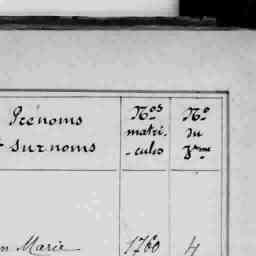 Prénoms
et surnoms
Nos
matri-
-cules
No
du
Vme
n Marie
1760
4